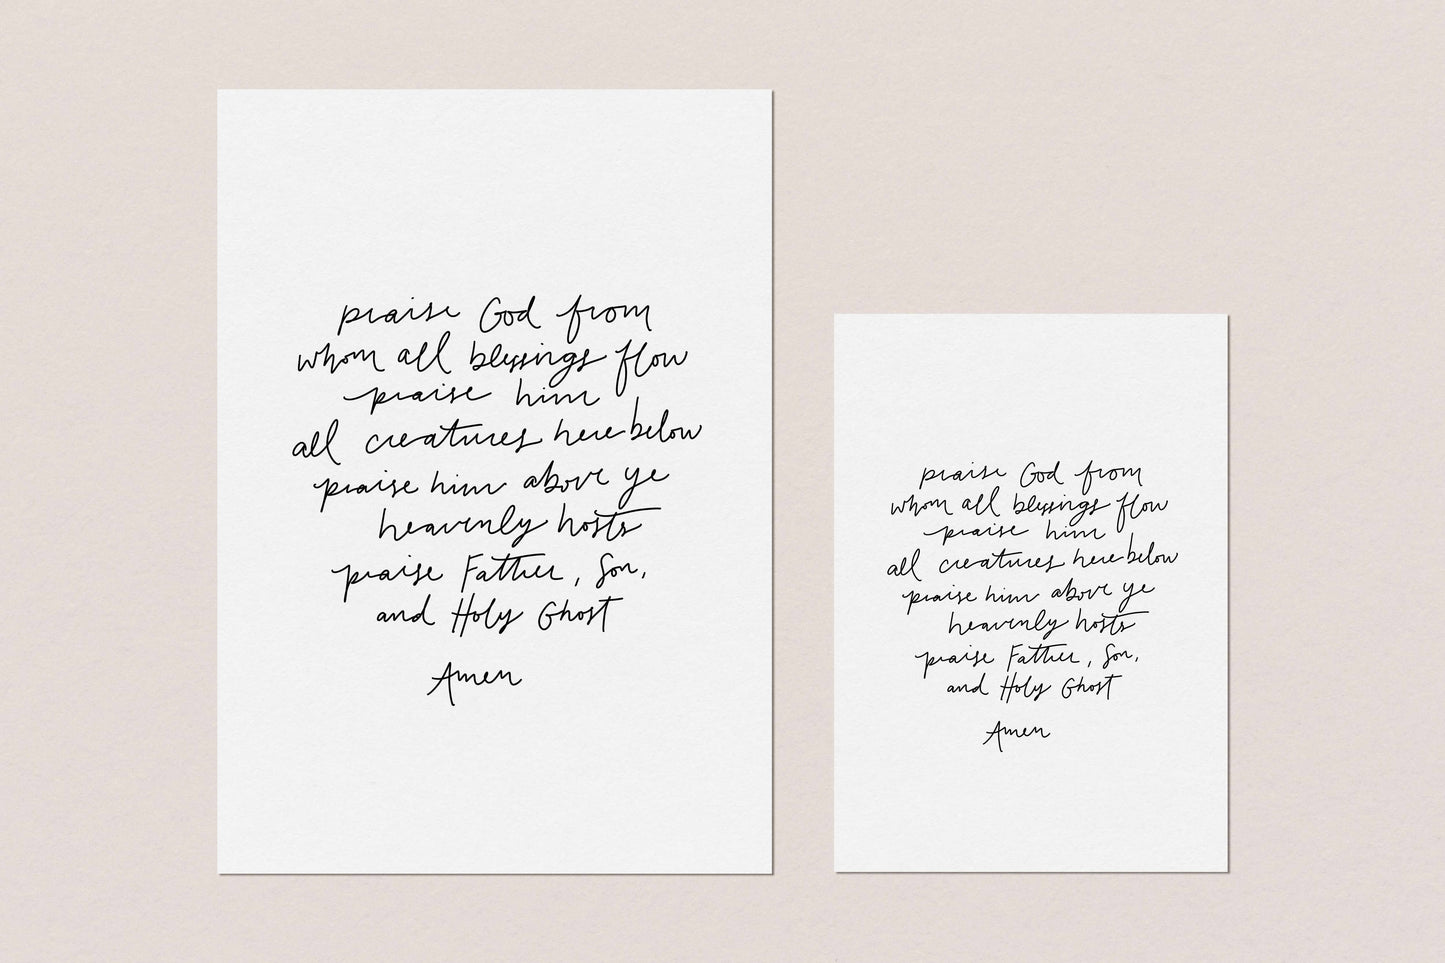 praise God from
whom all blessings flow
praise him
all creatures here below
praise him above ye
heavenly hosts
praise Father, Son,
and Holy Ghost
Amen
praise God from
whom all blessings flow
praise him
all creatures here below
praise him above ye
heavenly hosts
praise Father, Son,
and Holy Ghost
Amen